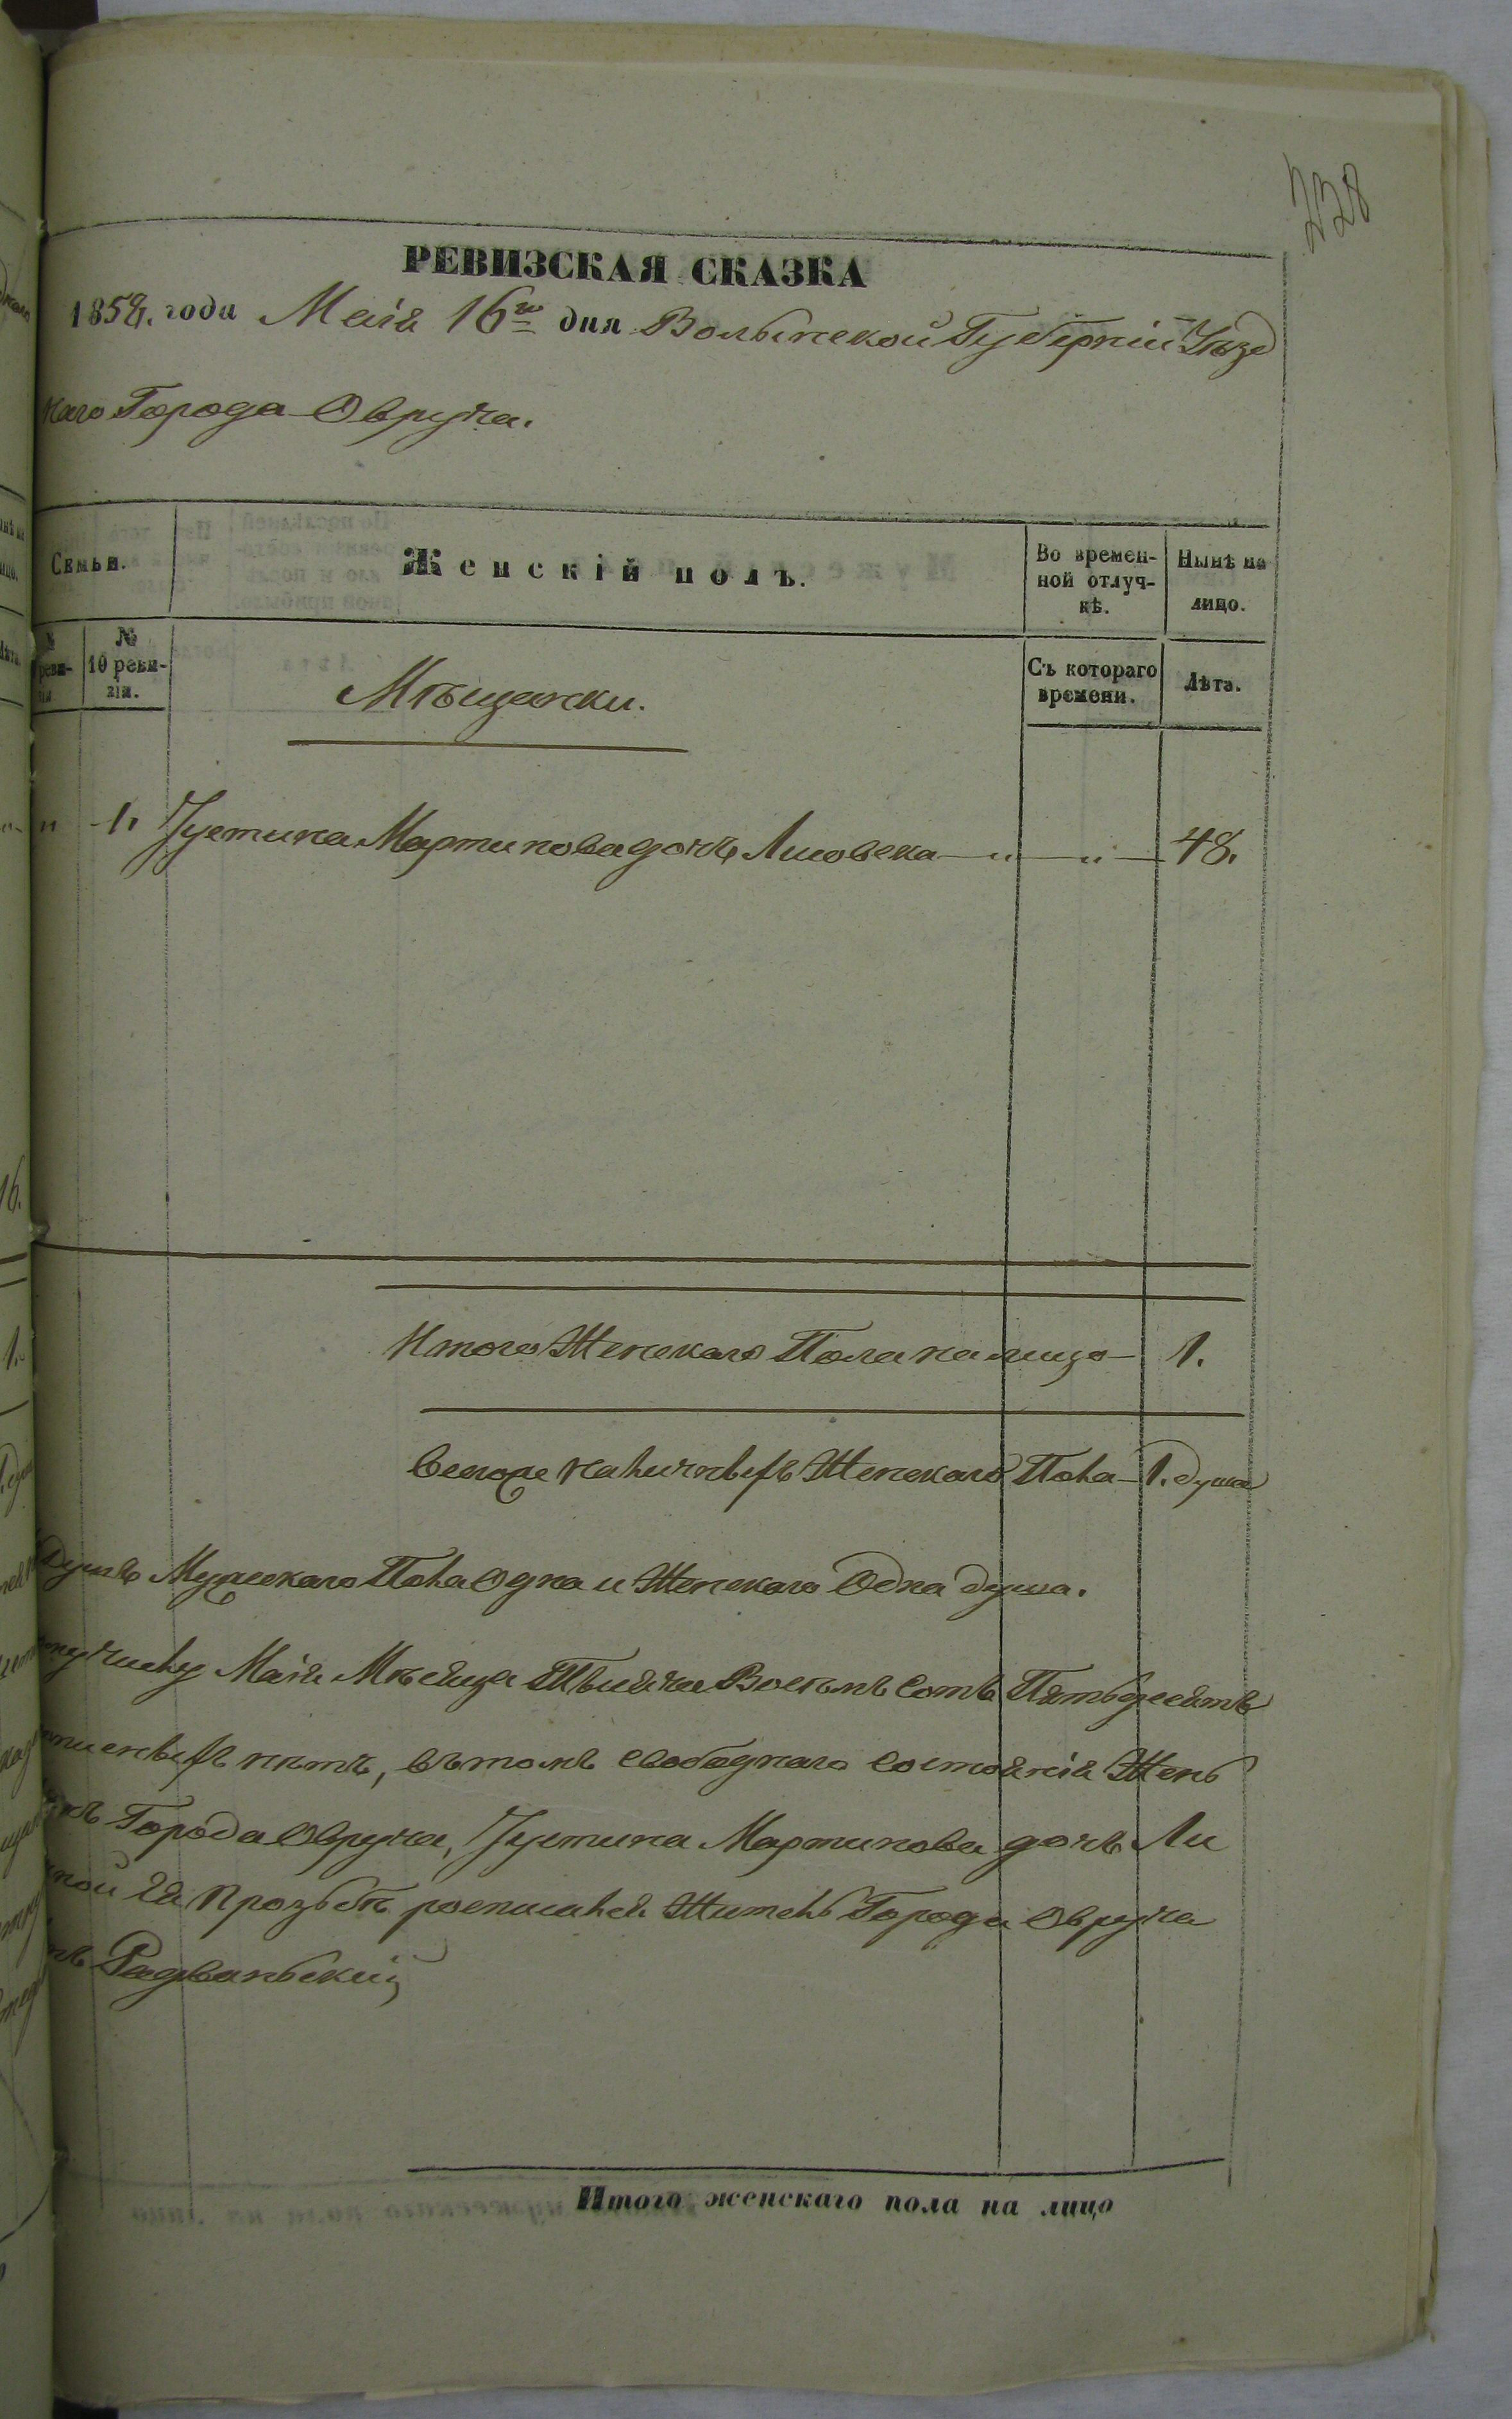 228
РЕВИЗСКАЯ СКАЗКА
1858. года Маія 16го дня Волынской Губерніи Уѣзд
наго Города Овруча.
Семьи.
Женскій полъ.
Во времен-
ной отлуч-
кѣ.
Нынѣ на
лицо.
№
10 реви-
зіи.
Мѣщанки.
Съ котораго
времени.
Лѣта.
" 1. Іустина Мартинова дочъ Лисовска " " 48.
Итого Женскаго Пола налицо 1.
Всего же наличныхъ Женскаго Пола 1. душа
Душъ Мужескаго Пола Одна и Женскаго Одна душа.
Маія Мѣсяца Тысяча Восемъ Сотъ Пятьдесятъ
нѣтъ, въ томъ свободнаго состоянія Жень
Города Овруча, Іустина Мартинова дочъ Ли
ной Ея прозьбѣ росписался Житель Города Овруча
Радваньскій
Итого женскаго пола на лицо